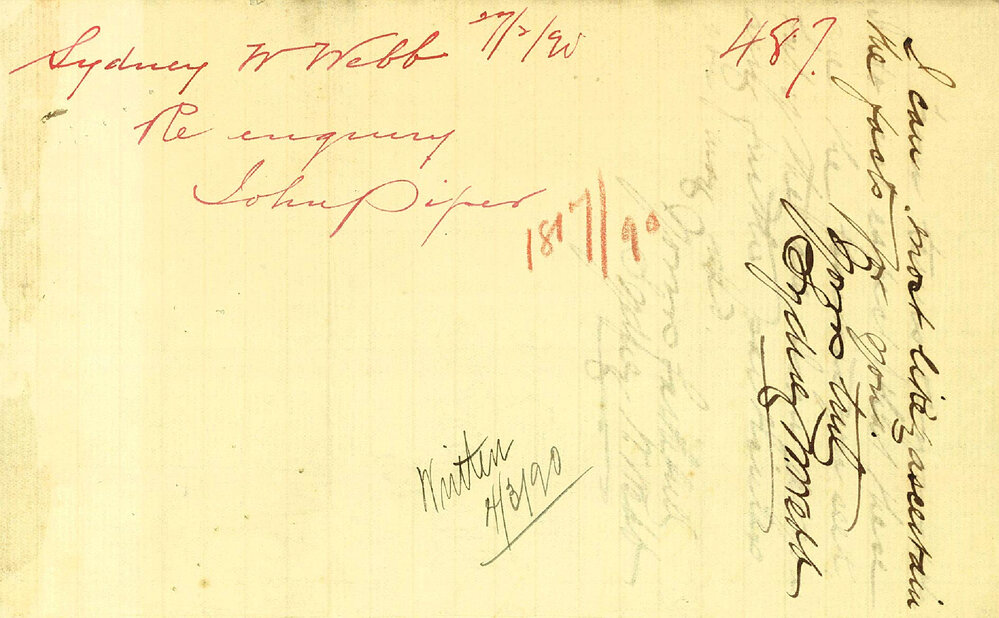 Sydney W Webb 27/2/90
487.
Re enquiry
John Piper
1817/90
Written
4/3/90
I can most likely ascertain
the facts for you.
Yours truly
Sydney W. Webb